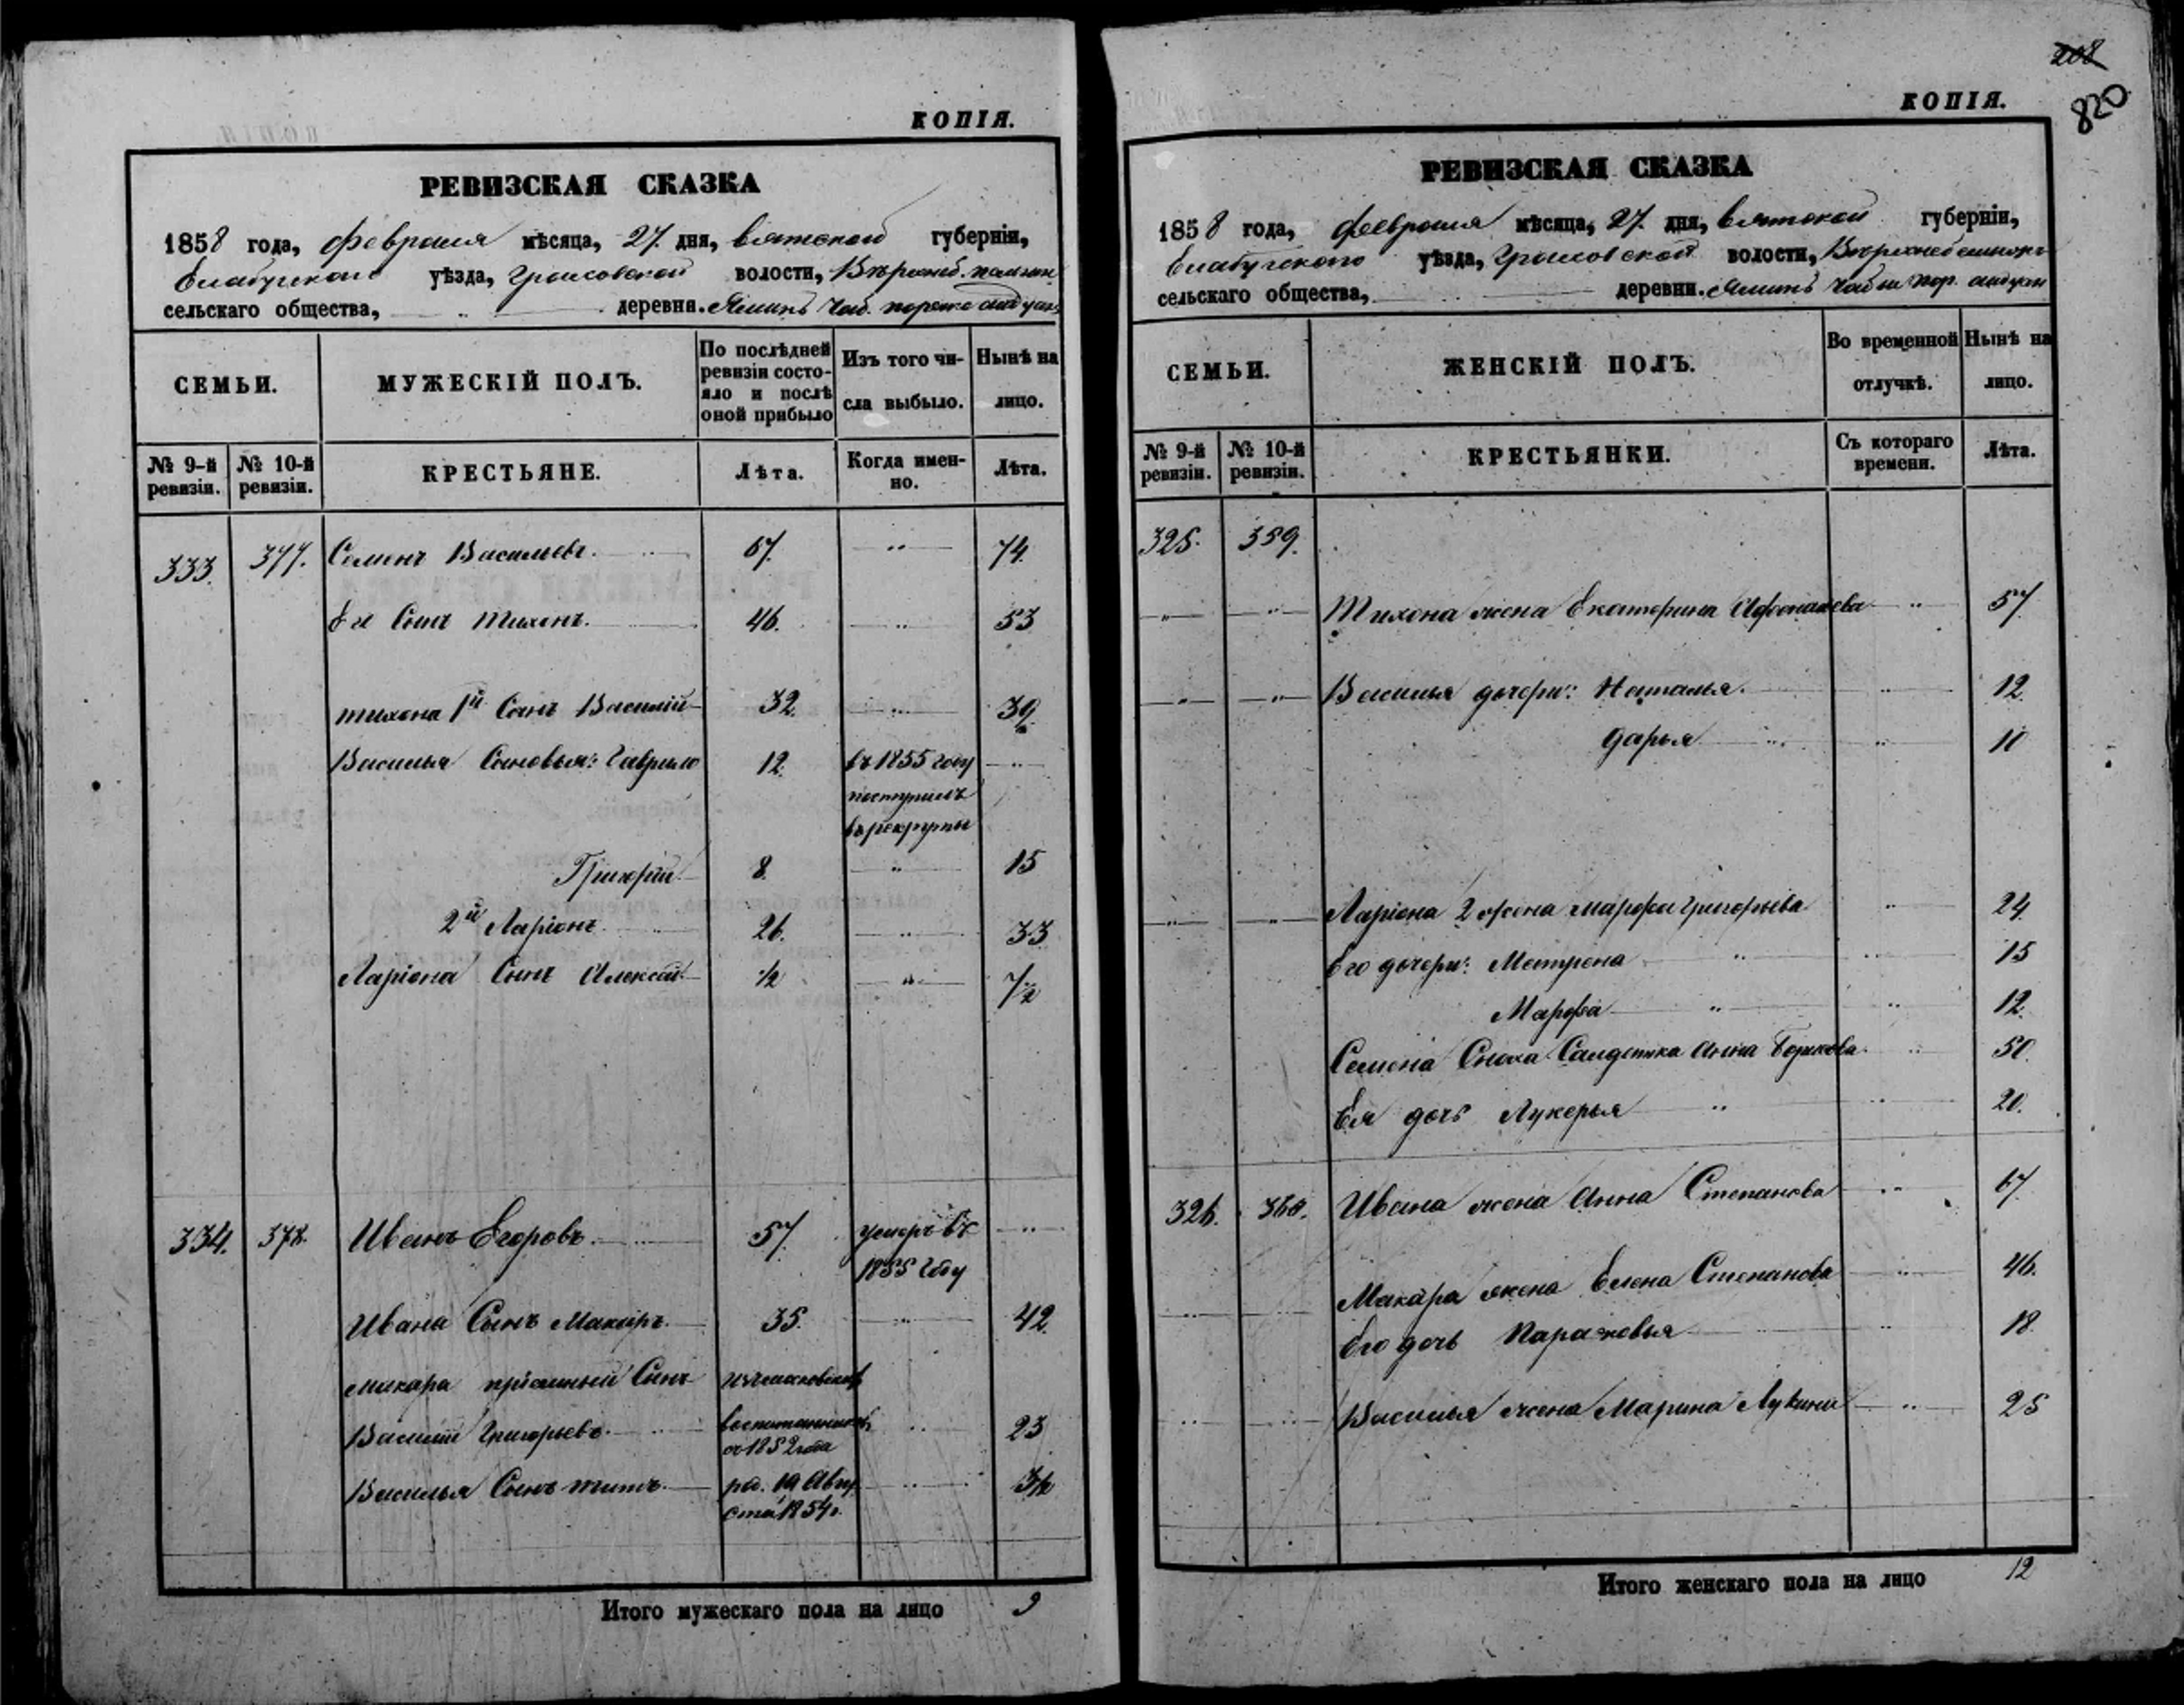 КОПІЯ.
РЕВИЗСКАЯ СКАЗКА
1858 года, февраля мѣсяца, 27. дня, Вятской губерніи,
Елабугскаго уѣзда, волости,
сельскаго общества, деревни.
СЕМЬИ.
МУЖЕСКІЙ ПОЛЪ.
По послѣдней
ревизіи состо-
яло и послѣ
оной прибыло
Изъ того чи-
сла выбыло.
Нынѣ на
лицо.
№ 9-й
ревизіи.
№ 10-й
ревизіи.
КРЕСТЬЯНЕ.
Лѣта.
Когда имен-
но.
Лѣта.
333. 377. Семенъ Васильевъ. 67. " 74.
Его Сынъ Тихонъ. 46. " 53
Тихона 1й Сынъ Василій 32. " 39.
Василья Сыновья: Гаврило 12. въ 1855 году "
поступилъ
въ рекруты
Григорій 8. " 15
2й Ларіонъ 26. " 33
Ларіона Сынъ Алексѣй ½ " 7½
334. 378. Иванъ Егоровъ. 57. умеръ въ "
1855 году
Ивана Сынъ Макаръ. 35. " 42.
Макара пріемный Сынъ
Василій Григорьевъ. " 23
съ 1852 года
Василья Сынъ Титъ. род. 19 Авгу " 3½
ста 1854г.
Итого мужескаго пола на лицо 9
208
820
КОПІЯ.
РЕВИЗСКАЯ СКАЗКА
1858 года, февраля мѣсяца, 27. дня, Вятской губерніи,
Елабугскаго уѣзда, волости,
сельскаго общества, деревни.
СЕМЬИ.
ЖЕНСКІЙ ПОЛЪ.
Во временной
отлучкѣ.
Нынѣ на
лицо.
№ 9-й
ревизіи.
№ 10-й
ревизіи.
КРЕСТЬЯНКИ.
Съ котораго
времени.
Лѣта.
325. 359.
" " Тихона жена Екатерина Афонасьева " 57.
" " Василья дочери: Наталья. " 12.
Дарья " " 10
" " Ларіона 2 жена Марфа Григорьева " 24
Его дочери: Матрена " " 15
Марфа " " 12.
Семена Сноха Салдатка Анна " 50
Ея дочь Лукерья " " 20.
326. 360. Ивана жена Анна Степанова " 67
" " Макара жена Елена Степанова " 46.
Его дочь Парасковья " " 18
" " Василья жена Марина Лукина " 25
Итого женскаго пола на лицо 12